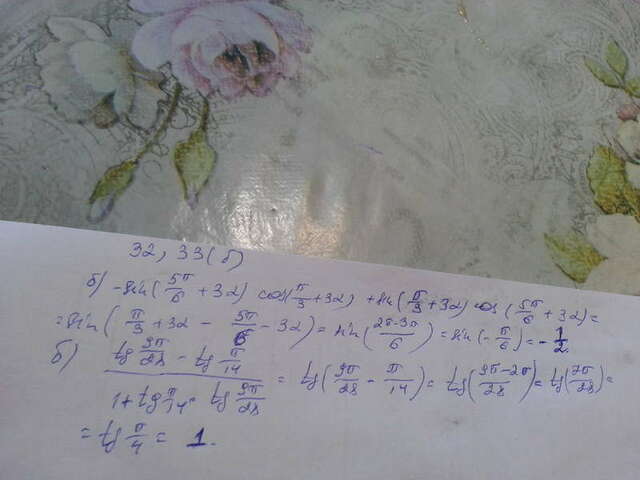 32, 33(б)
б) -sin(5π/6 + 3α) cos(π/3 + 3α) + sin(π/3 + 3α) cos(5π/6 + 3α) =
= sin(π/3 + 3α - 5π/6 - 3α) = sin((2π-3π)/6) = sin(-π/6) = -1/2.
б) (tg 9π/28 - tg π/14)/(1 + tg π/14 · tg 9π/28) = tg(9π/28 - π/14) = tg((9π-2π)/28) = tg(7π/28) =
= tg π/4 = 1.